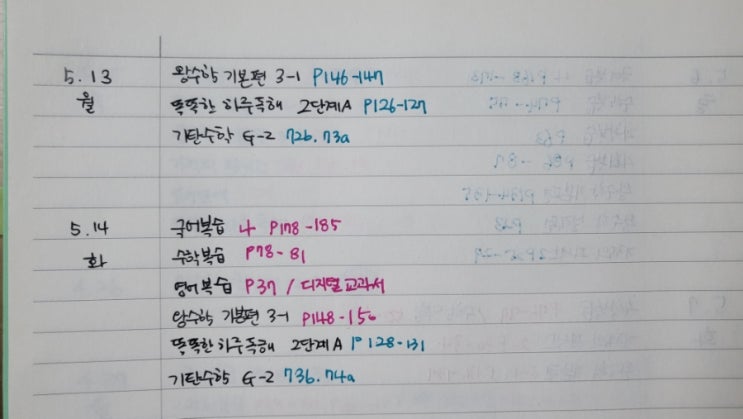 5.13 왕수학 기본편 3-1 P146-147
월 똑똑한 하루독해 2단계A P126-127
기탄수학 G-2 72b.73a
5.14 국어복습 나 P178-185
화 수학복습 P78-81
영어복습 P37 / 디지털교과서
왕수학 기본편 3-1 P148-150
똑똑한 하루독해 2단계A P128-131
기탄수학 G-2 73b.74a